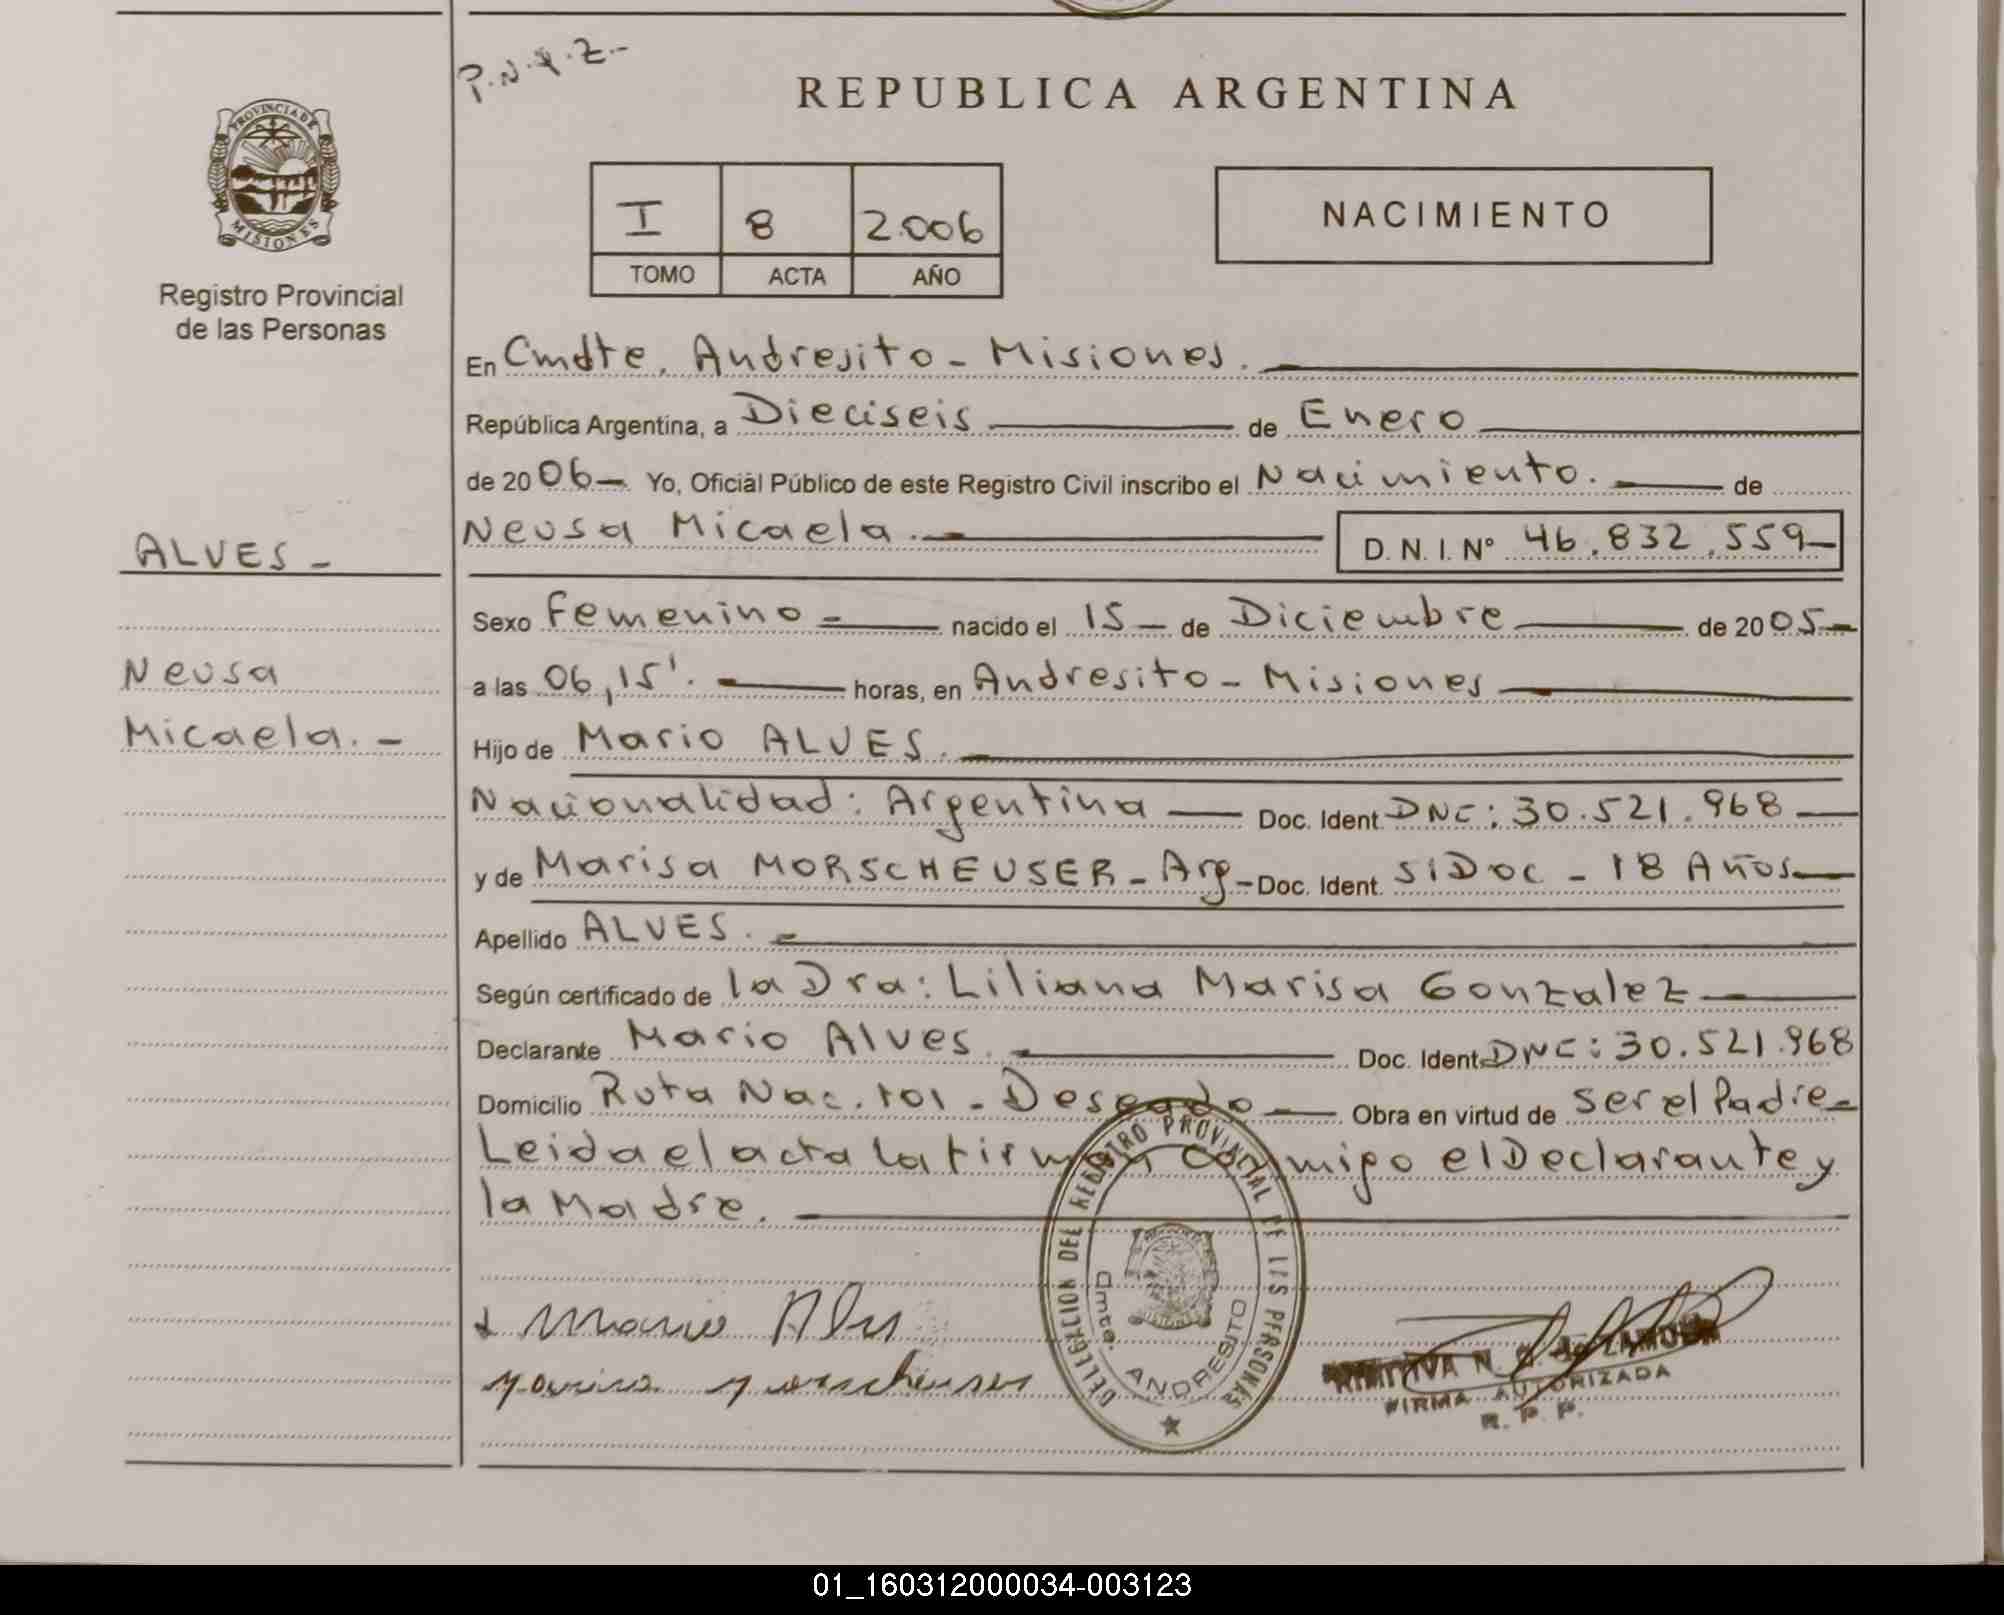 P.N.Y.Z.-
REPUBLICA ARGENTINA
PROVINCIA DE
MISIONES
I 8 2.006
TOMO ACTA AÑO
NACIMIENTO
Registro Provincial
de las Personas
En Cmdte. Andresito - Misiones.
República Argentina, a Dieciseis de Enero
de 20 06- Yo, Oficial Público de este Registro Civil inscribo el Nacimiento. de
Neusa Micaela.- D. N. I. Nº 46.832.559-
ALVES -
Neusa
Micaela. -
Sexo Femenino - nacido el 15 - de Diciembre de 20 05-
a las 06,15'. horas, en Andresito - Misiones
Hijo de Mario ALVES.
Nacionalidad: Argentina Doc. Ident. DNI: 30.521.968
y de Marisa MORSCHEUSER - Arg- Doc. Ident. S/Doc - 18 Años
Apellido ALVES. -
Según certificado de la Dra: Liliana Marisa Gonzalez
Declarante Mario Alves. Doc. Ident. DNI: 30.521.968
Domicilio Ruta Nac. 101 - Deseado Obra en virtud de ser el Padre-
Leida el acta la firman conmigo el Declarante y
la Madre.
Mario Alves
Marisa Morscheuser
DELEGACION DEL REGISTRO PROVINCIAL DE LAS PERSONAS
Cmte. ANDRESITO
FIRMA AUTORIZADA
R. P. P.
01_160312000034-003123